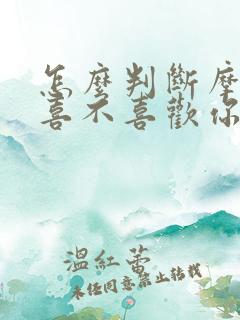 怎麼判斷摩
喜不喜歡你
溫紅蕾
未經同意禁止轉載